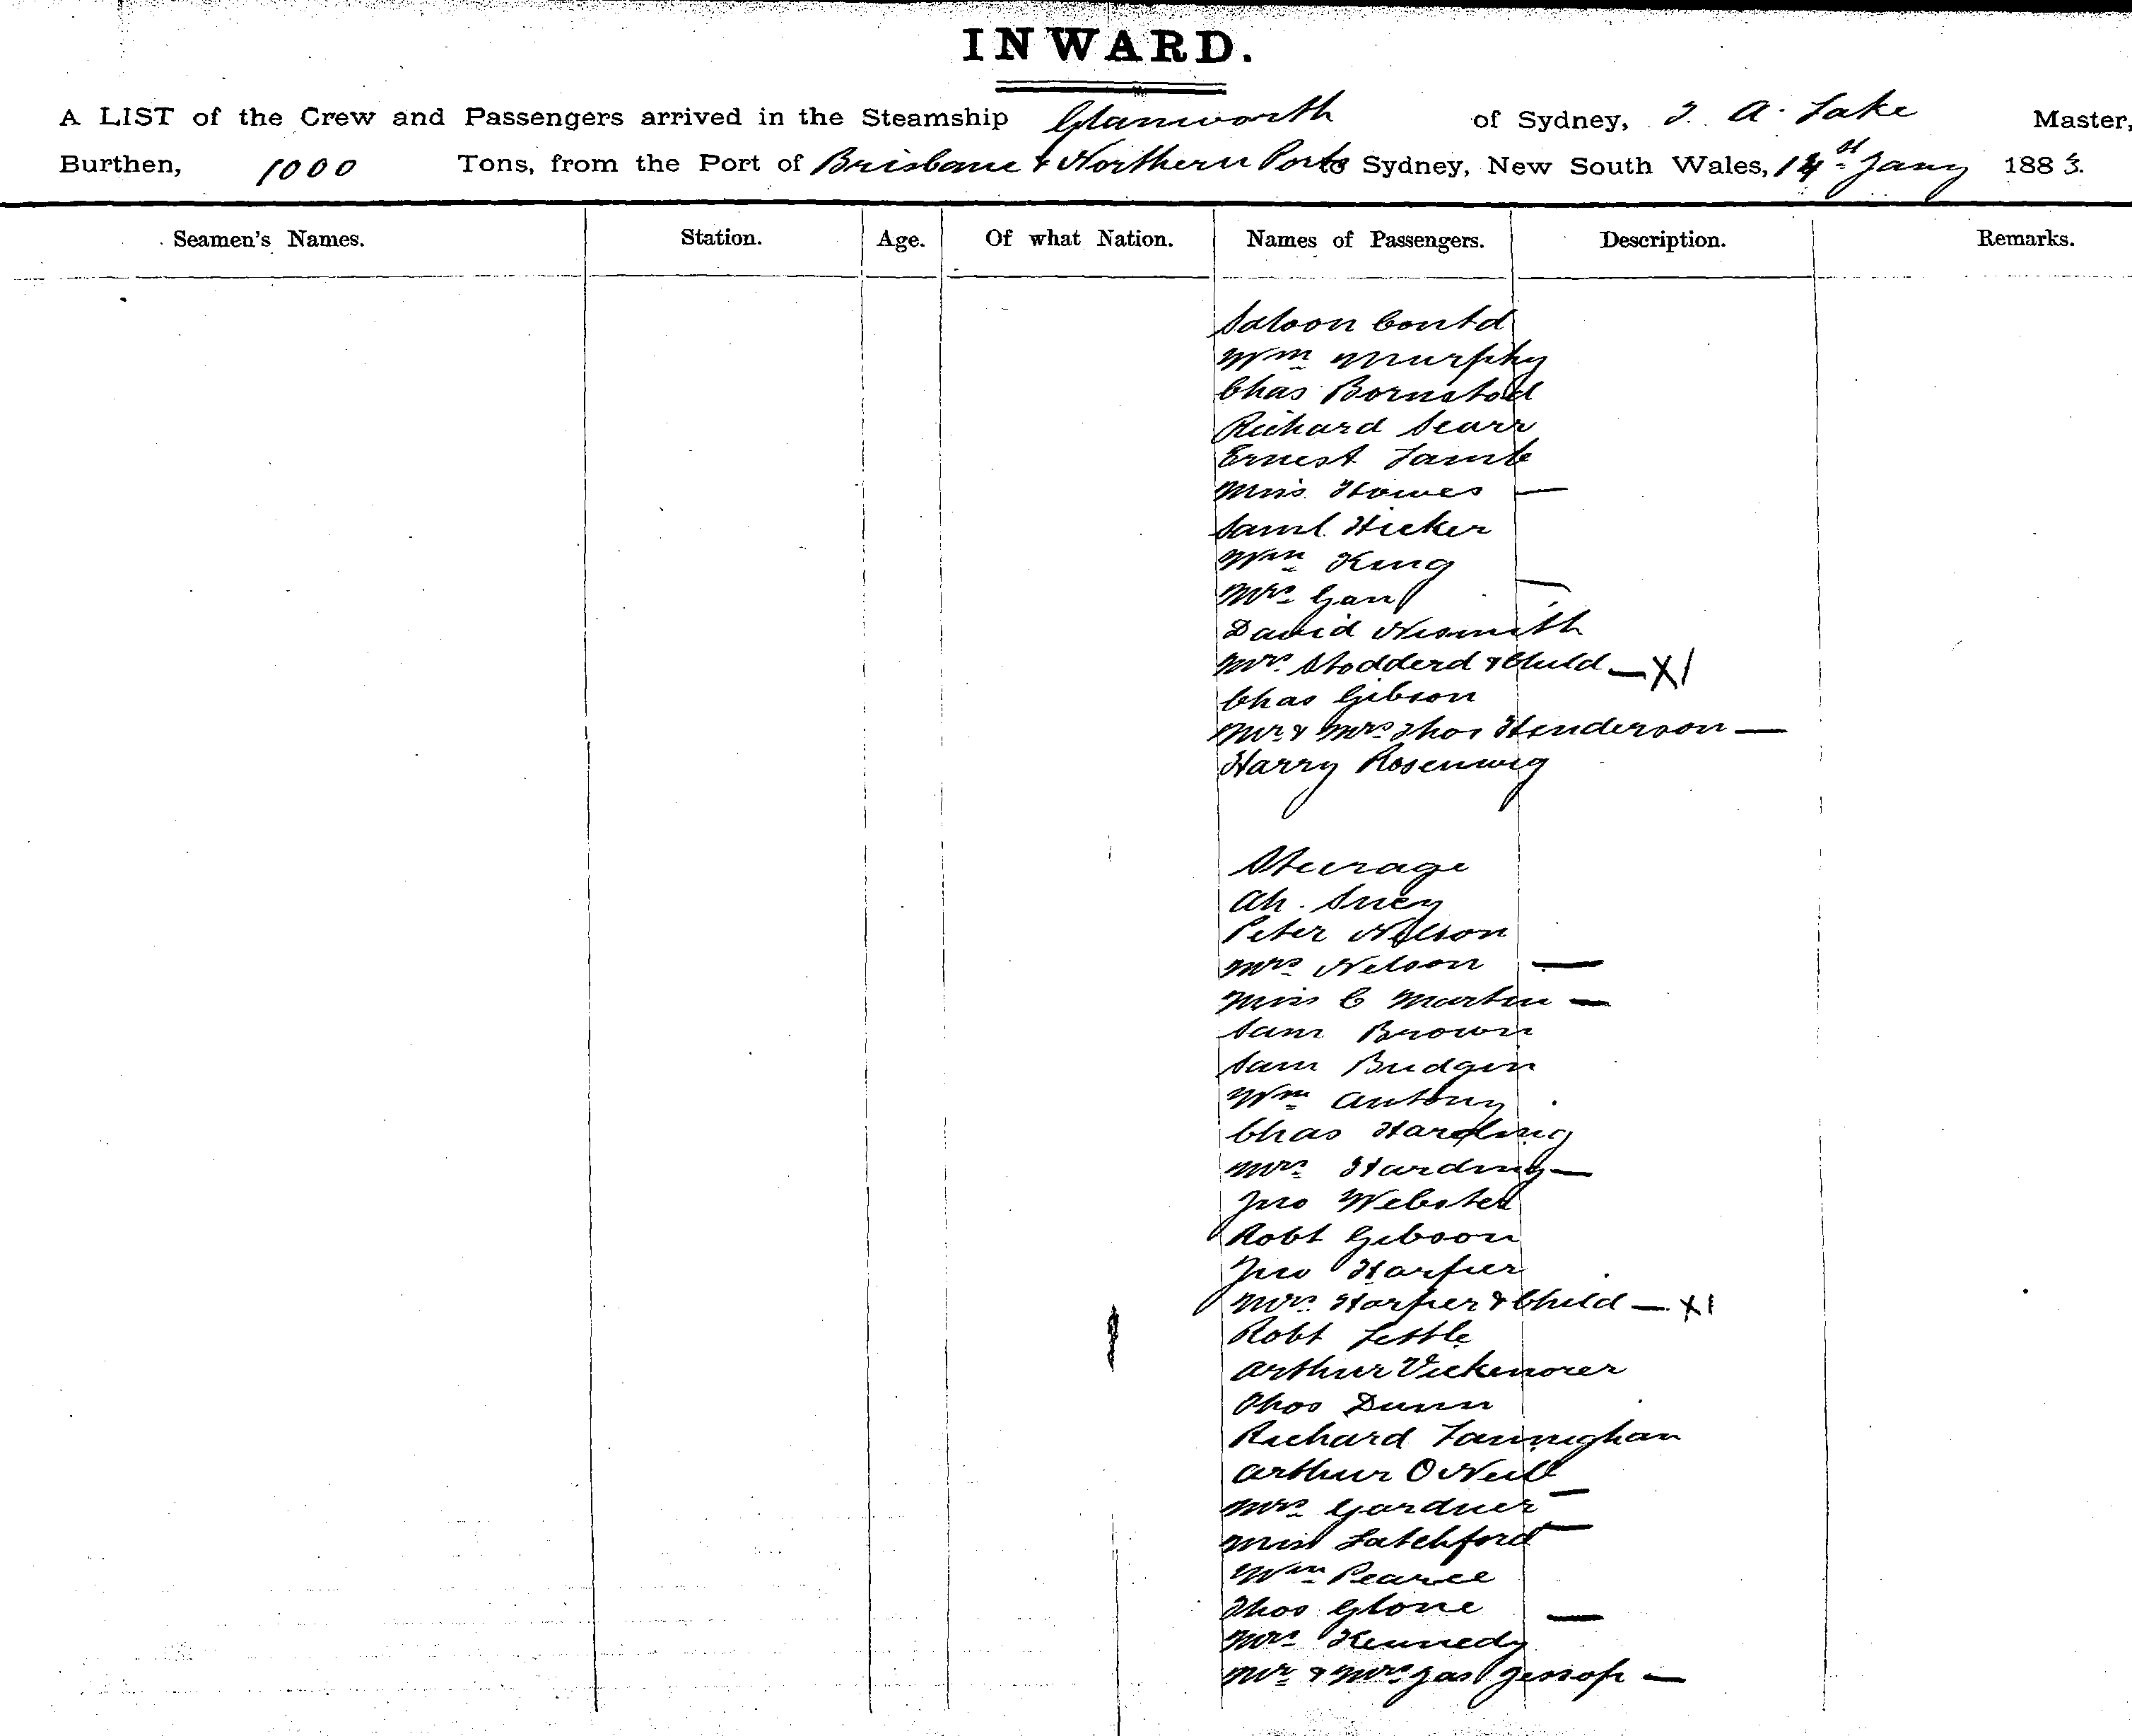 INWARD.
A LIST of the Crew and Passengers arrived in the Steamship Glanworth of Sydney, J. A. Lake Master,
Burthen, 1000 Tons, from the Port of Brisbane & Northern Ports to Sydney, New South Wales, 14st Jany 1883.
Seamen's Names. Station. Age. Of what Nation. Names of Passengers. Description. Remarks.
Saloon Contd
Wm Murphy
Chas
Richard Scarr
Ernest Lamb
Miss Howes —
Saml Hicker
Wm King
Mrs —
David Nesmith
Mrs Stodderd & Child — X1
Chas Gibson
Mr & Mrs Thos Henderson —
Harry Rosenwig
Steerage
Ah. Suey
Peter Nelson
Mrs Nelson —
Miss C Martin —
Sam Brown
Sam Budgin
Wm Antony
Chas Harding
Mrs Harding —
Jno Webster
Robt Gibson
Jno Harper
Mrs Harper & Child — X1
Robt
Arthur
Thos Dunn
Richard
Arthur O Neill
Mrs Gardner —
Miss Latchford —
Wm Pearce
Thos Glone
Mrs Kennedy —
Mr & Mrs Jas Jessop —